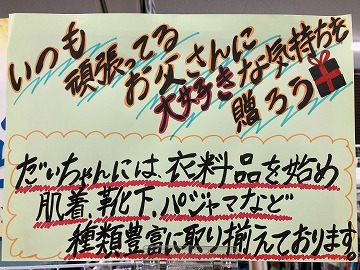 いつも
頑張ってる
お父さんに
大好きな気持ちを
贈ろう
だいちゃんには、衣料品を始め
肌着、靴下、パジャマなど
種類豊富に取り揃えております